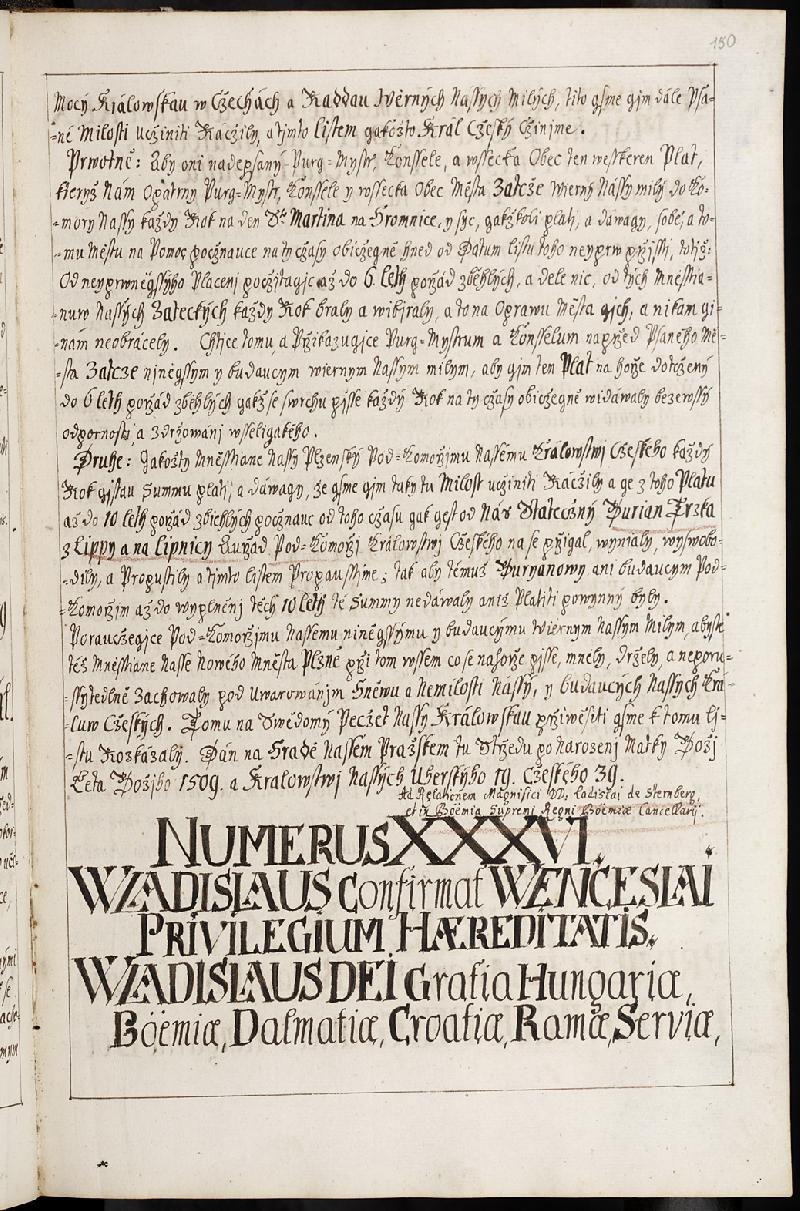 150
Mocý Králowskau w Cžechách a Raddau Wěrných Nassých Milých, tito gsme gjm dále Psa-
-né Milosti ucžiniti Ráčzily, a tjmto listem gakožto Král Cžeský Cžinjme.
Prwotně: Aby oni nadepsaný Purg-Mystr, Konssele, a wssecka Obec ten wesskeren Plat,
kterýž Nám Opatrný Purg-Mystr, Konssele y wssecka Obec Města Zatcže Wierný Nássý milý do Ko-
-mory Nassý každý Rok na den Sº Martina na Hromnice, y sýc, gakžkoli platj, a dáwagj, sobě, a to-
-mu Městu na Pomoc pocžnauce na ty cžasy obicžegné hned od Datum listu toho neyprw přjsstj, totiž:
Od neyprwněgssýho Placenj pocžjtagjc až do 6 leth pořád zběhlých, a dele nic, od tých Mněsstia-
-nuw Nassých Zateckých každý Rok braly a wibjraly, a to na Oprawu Města gjch, a nikam gi-
-nám neobrácely. Chtice tomu, a Přikazugjce Purg-Mystrum a Konsselum napřed Psaného Mě-
-sta Zatcze nineǧssým y budaucým wiernym Nassým milym, aby gjm ten Plat na hoře dotcžený
do 6 leth pořád zběhlých gakž se swrchu pjsse každý Rok na ty cžasy obicžegné widáwaly bezewssý
odpornosti a Zdržowánj wsseligakého.
Druhe: Jakožty Mněsstiane Nassý Plzenský Pod-Komořjmu Nassému Králowstwj Cžeského každý
Rok gistau Summu platj, a dáwagj, že gsme gjm taky tu Milost ucžiniti Ráčžily a ge z toho Platu
až do 10 leth pořád zběhlých pocžnauc od toho cžasu gak gest od Nás Statecžný Burian Trzka
z Lippy a na lipnicy Auřad Pod-Komořj Králowstwj Cžeského na se přigal, wyniały, wyswobo-
-dily, a Propustily a tjmto listem Propausstjme; tak aby témuž Buryanowy ani budaucým Pod-
-Komořjm až do wyplněnj těch 10 leth té Summy nedáwaly aniž Platiti powynný byly.
Poraucžegjce Pod-Komořjmu Nassému niněgssýmu y budaucýmu Wiernym Nassým Milým, abyste
též Mněsstiane Nasse Nowého Mněsta Plzně při tom wssem co se nahoře pjsse, mněly, drželý, a neporu-
-ssytedlně Zachowaly pod Uwarowánjm Hněwu a Nemilosti Nassý, y budaucých Nassých Krá-
-luw Cžeských. Tomu na Swědomý Pecžet Nassý Králowskau přiwěsyti gsme k tomu li-
-stu Rozkázaly. Dán na Hradě Nassem Pražském tu Středu po Narozenj Matky Božj
Léta Božjho 1509. a Kralowstwj Nassých Uherskýho 19. Cžeského 39.
Ad Relationem Magnifici D̃D. Ladislaj de Sternberg,
et in Böemia Supremi Regni Böemiæ Cancellarij.
NUMERUS XXXVI.
WLADISLAUS Confirmat WENCESLAI
PRIVILEGIUM HÆREDITATIS.
WLADISLAUS DEI Gratia Hungariæ,
Böemiæ, Dalmatiæ, Croatiæ, Ramæ, Serviæ,